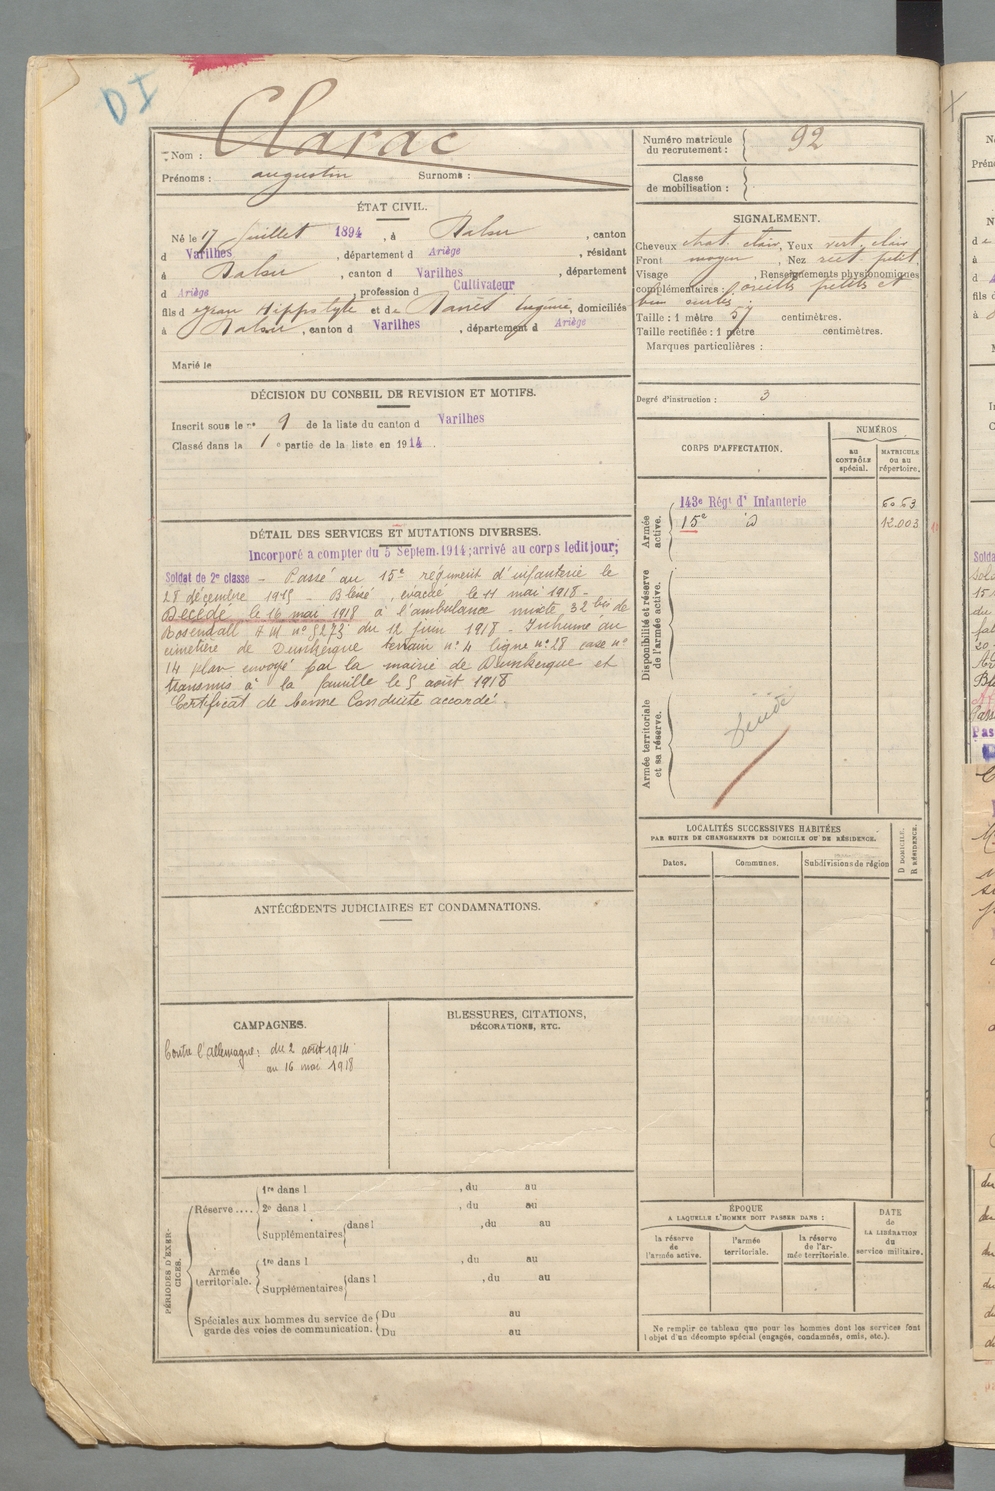 DI
Nom : Clarac
Prénoms : augustin Surnoms :
Numéro matricule du recrutement : 92
Classe de mobilisation :
ÉTAT CIVIL.
Né le 17 juillet 1894, à Dalou, canton
d Varilhes, département d Ariège, résidant
à Dalou, canton d Varilhes, département
d Ariège, profession d Cultivateur
fils d Jean Hippolyte et de Eugénie, domiciliés
à Dalou, canton d Varilhes, département d Ariège
Marié le
SIGNALEMENT.
Cheveux chat. clair, Yeux vert. clair
Front moyen, Nez rect. petit
Visage , Renseignements physionomiques
complémentaires : oreilles petites et
bien
Taille : 1 mètre 57 centimètres.
Taille rectifiée : 1 mètre centimètres.
Marques particulières :
Degré d'instruction : 3
DÉCISION DU CONSEIL DE REVISION ET MOTIFS.
Inscrit sous le nº 9 de la liste du canton d Varilhes
Classé dans la 1 e partie de la liste en 1914.
CORPS D'AFFECTATION.
NUMÉROS
au CONTRÔLE spécial.
MATRICULE ou au répertoire.
Armée active.
143e Régt d' Infanterie 6063
15e id 12.003
Disponibilité et réserve de l'armée active.
Armée territoriale et sa réserve.
DÉTAIL DES SERVICES ET MUTATIONS DIVERSES.
Incorporé a compter du 5 Septem. 1914; arrivé au corps ledit jour;
Soldat de 2e classe – Passé au 15e régiment d'infanterie le
28 décembre 1915 – Blessé, évacué le 11 mai 1918 –
Décédé le 16 mai 1918 à l'ambulance mixte 32 bis de
Rosendaël A.M. nº 5273 du 12 juin 1918 – Inhumé au
cimetière de Dunkerque terrain nº 4 ligne nº 28 nº
14 plan envoyé par la mairie de Dunkerque et
transmis à la famille le 5 août 1918
Certificat de bonne Conduite accordé.
LOCALITÉS SUCCESSIVES HABITÉES
PAR SUITE DE CHANGEMENTS DE DOMICILE OU DE RÉSIDENCE.
Dates.
Communes.
Subdivisions de région
D DOMICILE.
R RÉSIDENCE.
ANTÉCÉDENTS JUDICIAIRES ET CONDAMNATIONS.
CAMPAGNES.
Contre l'Allemagne: du 2 août 1914
au 16 mai 1918
BLESSURES, CITATIONS,
DÉCORATIONS, ETC.
PÉRIODES D'EXERCICES.
Réserve ....
1re dans l , du au
2e dans l , du au
Supplémentaires dans l , du au
Armée territoriale.
1re dans l , du au
Supplémentaires dans l , du au
Spéciales aux hommes du service de garde des voies de communication.
Du au
Du au
ÉPOQUE
A LAQUELLE L'HOMME DOIT PASSER DANS :
la réserve de l'armée active.
l'armée territoriale.
la réserve de l'armée territoriale.
DATE de LA LIBÉRATION du service militaire.
Ne remplir ce tableau que pour les hommes dont les services font
l'objet d'un décompte spécial (engagés, condamnés, omis, etc.).